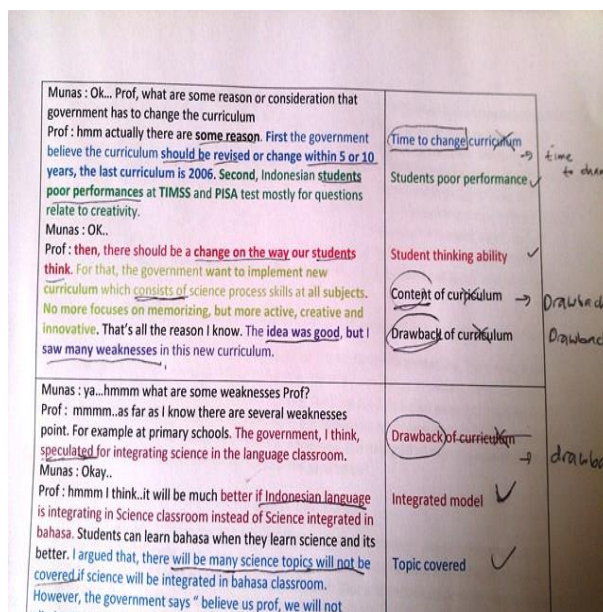 Munas : Ok... Prof, what are some reason or consideration that
government has to change the curriculum
Prof : hmm actually there are some reason. First the government
believe the curriculum should be revised or change within 5 or 10
years, the last curriculum is 2006. Second, Indonesian students
poor performances at TIMSS and PISA test mostly for questions
relate to creativity.
Munas : OK..
Prof : then, there should be a change on the way our students
think. For that, the government want to implement new
curriculum which consists of science process skills at all subjects.
No more focuses on memorizing, but more active, creative and
innovative. That's all the reason I know. The idea was good, but I
saw many weaknesses in this new curriculum.
Time to change curriculum
time
to chan
Students poor performance
Student thinking ability
Content of curriculum
Drawback
Drawback of curriculum
Drawback
Munas : ya...hmmm what are some weaknesses Prof?
Prof : mmmm..as far as I know there are several weaknesses
point. For example at primary schools. The government, I think,
speculated for integrating science in the language classroom.
Munas : Okay..
Prof : hmmm I think..it will be much better if Indonesian language
is integrating in Science classroom instead of Science integrated in
bahasa. Students can learn bahasa when they learn science and its
better. I argued that, there will be many science topics will not be
covered if science will be integrated in bahasa classroom.
However, the government says " believe us prof, we will not
Drawback of curriculum
drawba
Integrated model
Topic covered